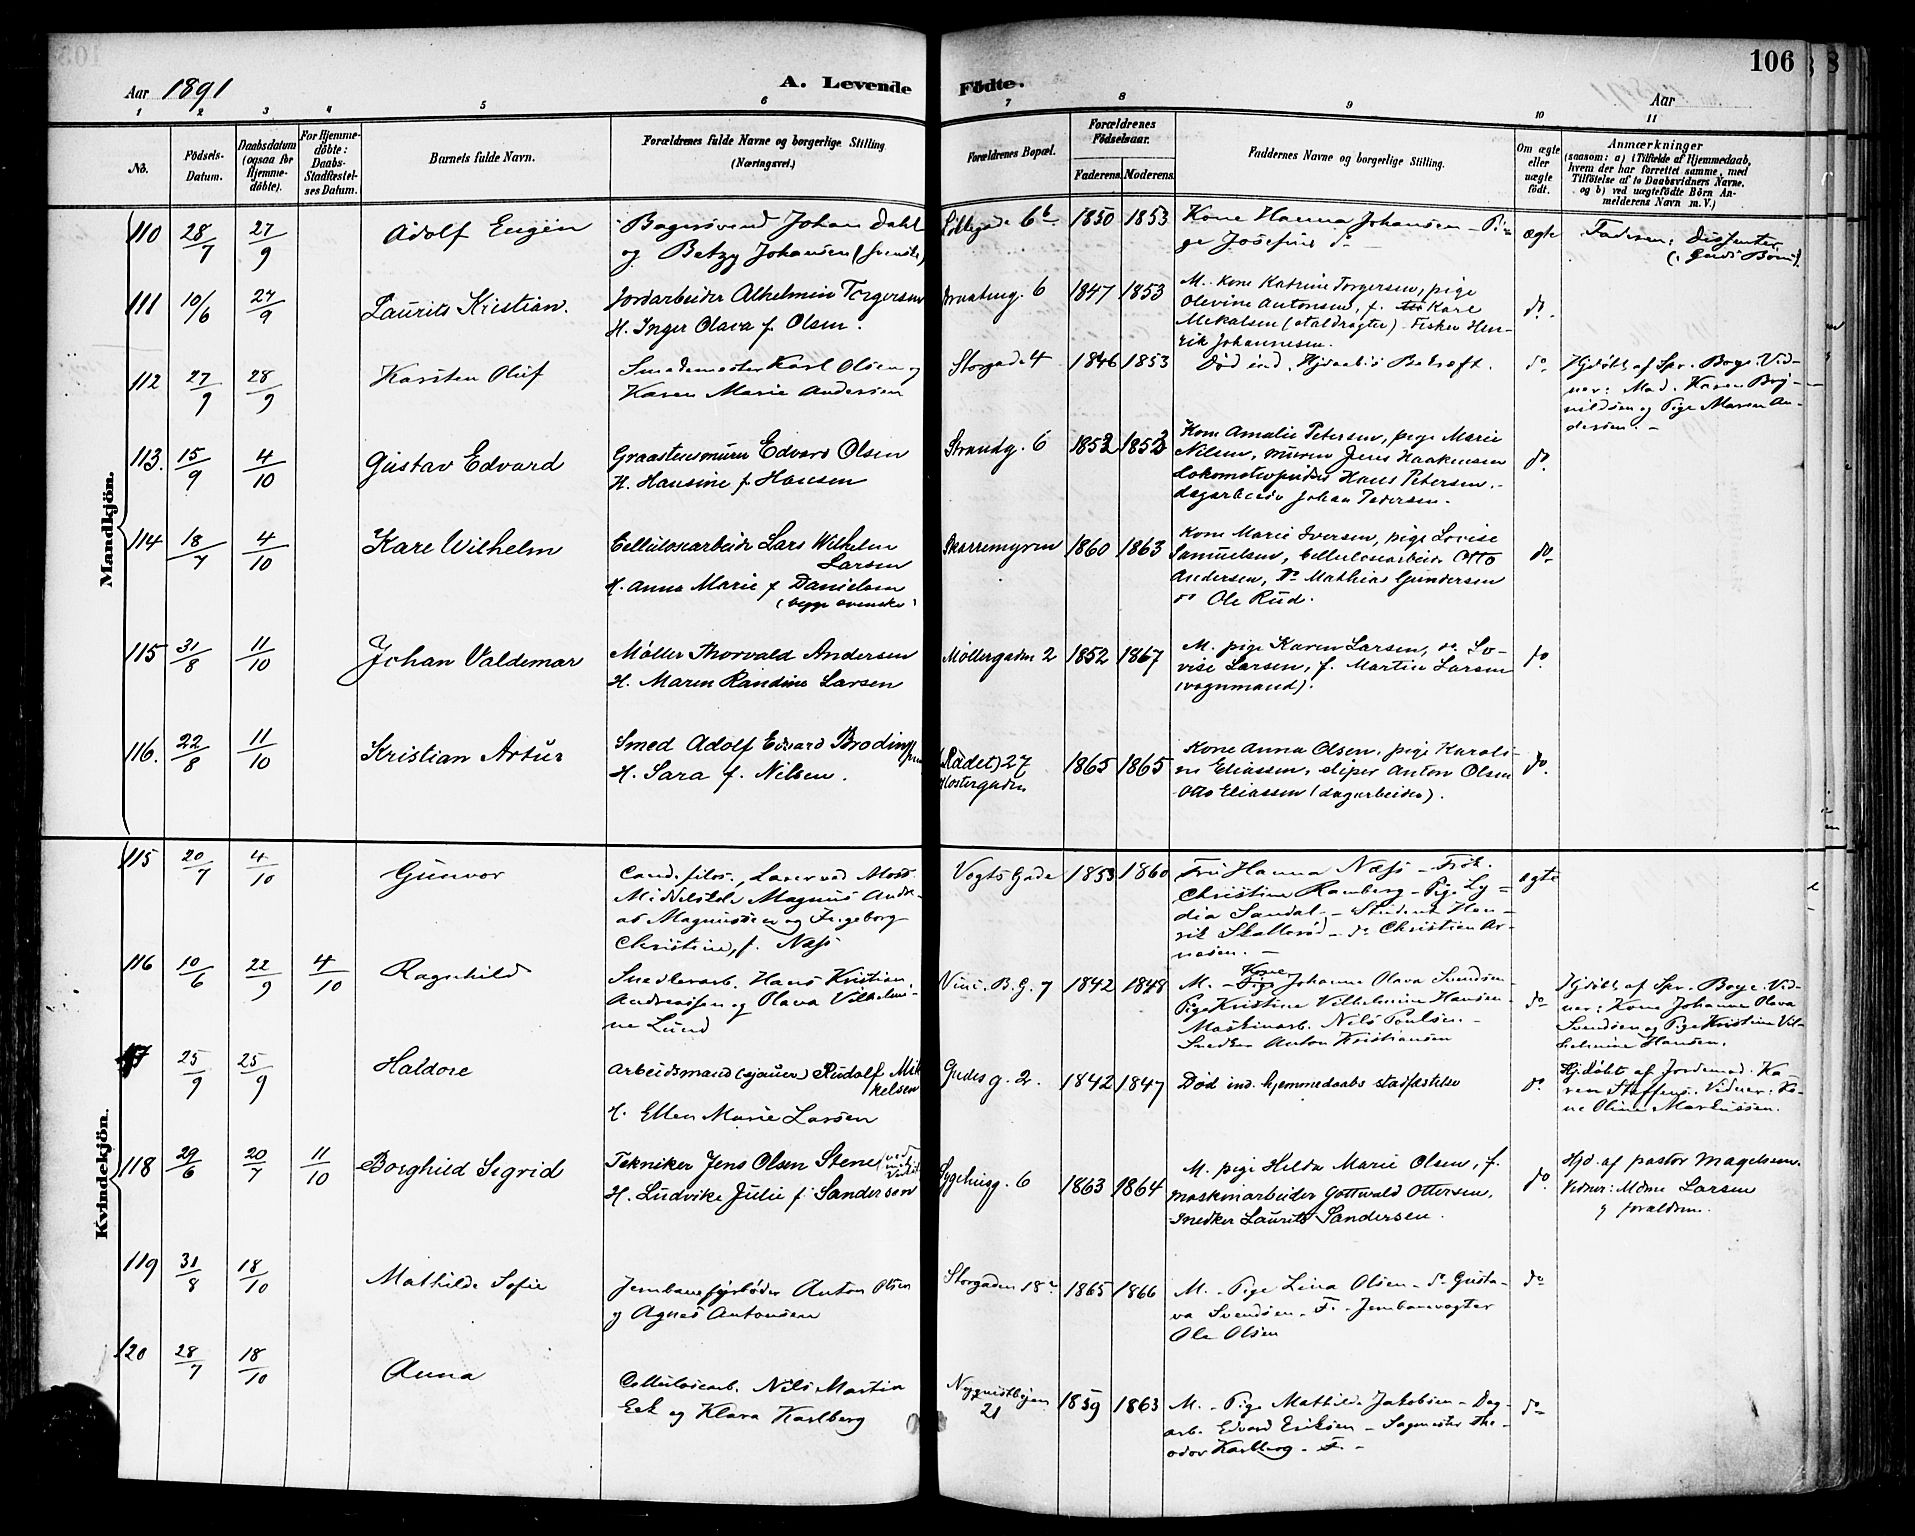 106
Aar 1891
A. Levende
Fødte.
Aar
1 2 3 4 5 6 7 8 9 10 11
No.
Fødsels-
Datum.
Daabsdatum
(ogsaa for
Hjemme-
døbte).
For Hjemme-
døbte:
Daabs-
Stadfæstel-
ses Datum.
Barnets fulde Navn.
Forældrenes fulde Navne og borgerlige Stilling
(Næringsvei.)
Forældrenes Bopæl.
Forældrenes
Fødselsaar.
Faderens. Moderens.
Faddernes Navne og borgerlige Stilling.
Om ægte
eller
uægte
født.
Anmærkninger
(saasom: a) i Tilfælde af Hjemmedaab,
hvem der har forrettet samme, med
Tilføielse af to Daabsvidners Navne.
og b) ved uægtefødte Børn An-
melderens Navn m.V.)
Mandkjön.
110 28/7 27/9 Adolf Eugen
Bagersvend Johan Dahl
og Betzy Johansen (svenske)
6b 1850 1853
Kone Hanna Johansen - Pi-
ge Josefine do
ægte
Faderen: Dissenter
111 10/6 27/9 Laurits Kristian.
Jordarbeider Alhelmin Torgersen
H. Inger Olava f. Olsen.
6 1847 1853
M. Kone Katrine Torgersen, pige
Olevine Antonsen, f. Karl
Mikalsen (staldrøgter) - Fisker Hen-
rik Johannesen.
do.
112 27/9 28/9 Karsten Oluf
Smedemester Karl Olsen og
Karen Marie Andersen
Storgade 4 1846 1853
Død ind. Hjdaabs Bekræft.
do
Hjdøbt af Spr. Boye. Vid-
ner: Mad. Karen Bryn-
nildsen og Pige Maren An-
dersen. -
113. 15/9 4/10 Gustav Edvard
Graastensmurer Edvard Olsen
H. Hansine f. Hansen
Strandg. 6 1852 1852
Kone Amalie Petersen, pige Marie
Nilsen, murer Jens Haakensen
Lokomotivpudser Hans Petersen,
dagarbeider Johan Pedersen.
do.
114 18/7 4/10 Kare Wilhelm
Cellulosearbeider Lars Wilhelm
Larsen
H. Anna Marie f. Danielsen
(begge svenske)
Skarremyren 1860 1863
Kone Marie Iversen, pige Lovise
Samuelsen, Cellulosearbeider Otto
Andersen, do Mathias Gundersen
do Ole Rud.
do
115 31/8 11/10 Johan Valdemar
Møller Thorvald Andersen
H. Maren Randine Larsen
Møllergaden 2 1852 1867
M. pige Karen Larsen, do Lo-
vise Larsen, f. Martin Larsen
(vognmand).
do
116. 22/8 11/10 Kristian Artur
Smed Adolf Edvard Broding
H. Sara f. Nilsen.
27
Klostergaden
1865 1865
Kone Anna Olsen, pige Karoli-
ne Eliassen, sliper Anton Olsen
Otto Eliassen (dagarbeider).
do.
Kvindekjön.
115 20/7 4/10 Gunvor
Cand. filos., Lærer ved Moss
Middelskole Magnus Andre-
as Magnussen og Ingeborg
Christine, f. Næss
Vogts Gade 1853 1860
Fru Hanna Næss - Frøk.
Christine Ramberg - Pige Ly-
dia Sandal - Student Hen-
rik Skallerød - do Christian Ar-
nesen. -
ægte
116 10/6 22/9 4/10 Ragnhild
Snedkerarb. Hans Kristian
Andreassen og Olava Vilhelmi-
ne Lund
7 1842 1848
M. - Kone Johanne Olava Svendsen
Pige Kristine Vilhelmine Hansen
Maskinarb. Nils Poulsen. -
Snedker Anton Kristiansen
do
Hjdøbt af Spr. Boye. Vid-
ner: Kone Johanne Olava
Svendsen og Pige Kristine Vil-
helmine Hansen.
117 25/9 25/9 Haldore
Arbeidsmand (sjauer) Rudolf Mik
kelsen
H. Ellen Marie Larsen
Gudes g. 2. 1842 1847
Død ind. hjemmedaabs stadfæstelse
do
Hjdøbt af Jordemod. Ka-
ren Steffens. Vidner: Ko-
ne Oline Markussen.
118 29/6 20/7 11/10 Borghild Sigrid
Tekniker Jens Olsen Stene
H. Ludvike Julie f. Sandersen
Sygehusg. 6 1863 1864
M. pige Hilda Marie Olsen, f.
maskinarbeider Gottwald Ottersen,
snedker Laurits Sandersen.
do
Hjd. af pastor Magelssen.
Vidner: Mdme Larsen
og forældrene.
119 31/8 18/10 Mathilde Sofie
Jernbanefyrbøder Anton Olsen
og Agnes Antonsen
Storgaden 18 1865 1866
M. - Pige Lina Olsen - do Gusta-
va Svendsen - F. - Jernbanevogter
Ole Olsen
do
120 28/7 18/10 Anna
Cellulosearb. Nils Martin
Eek og Klara Karlberg
Nyquistbyen
21
1859 1863
M. - Pige Mathilde Jakobsen - Dag-
arb. Edvard Eriksen - Sagmester The-
odor Karlberg - F. -
do